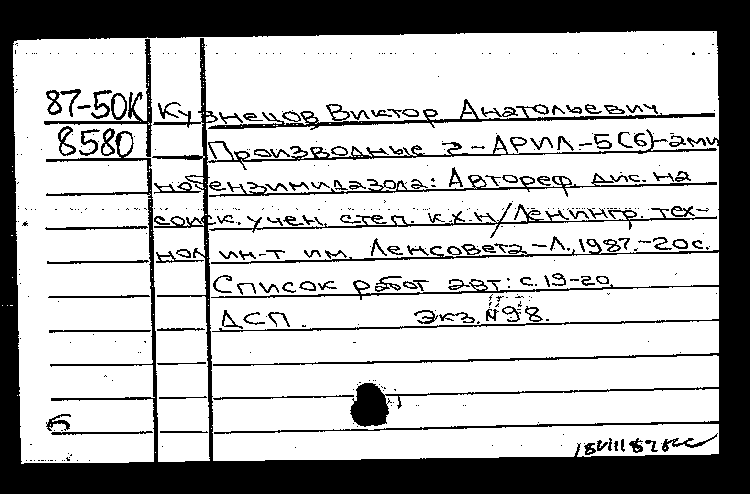 87-50К Кузнецов Виктор Анатольевич
8580 Производные 2-АРИЛ-5(6)-ами
нобензимидазола: Автореф. дис. на
соиск. учен. степ. к.х.н/Ленингр. тех-
нол ин-т им. Ленсовета-Л., 1987.-20с.
Список работ авт: с. 19-20
ДСП. Экз. №98.
Б